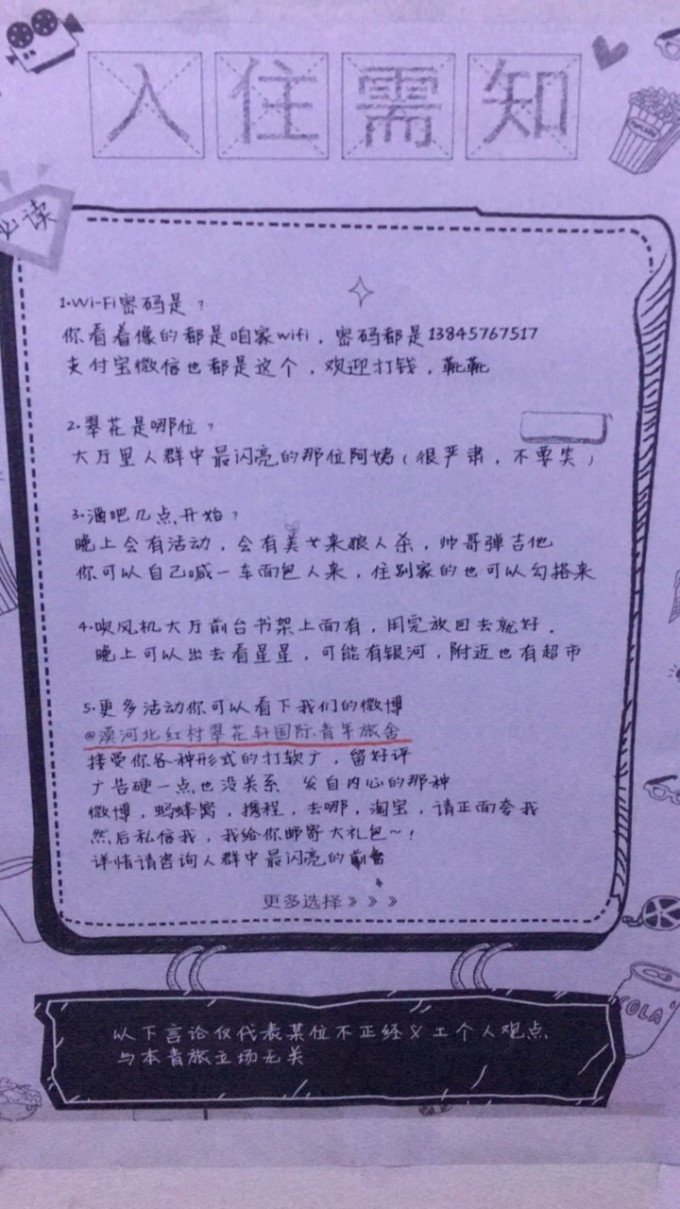 入住需知
必读
1·Wi-Fi密码是？
你看着像的都是咱家wifi，密码都是13845767517
支付宝微信也都是这个，欢迎打钱，靴靴
2·翠花是哪位？
大厅里人群中最闪亮的那位阿姨（很严肃，不要笑）
3·酒吧几点开始？
晚上会有活动，会有美女来狼人杀，帅哥弹吉他
你可以自己喊一车面包人来，住别家的也可以勾搭来
4·吹风机大厅前台书架上面有，用完放回去就好。
晚上可以出去看星星，可能有银河，附近也有超市
5·更多活动你可以看下我们的微博
@漠河北红村翠花轩国际青年旅舍
接受你各种形式的打软广，留好评
广告硬一点也没关系 发自内心的那种
微博，蚂蜂窝，携程，去哪，淘宝，请正面夸我
然后私信我，我给你邮寄大礼包～！
详情请咨询人群中最闪亮的前台
更多选择》》》
COLA
以下言论仅代表某位不正经义工个人观点
与本青旅立场无关